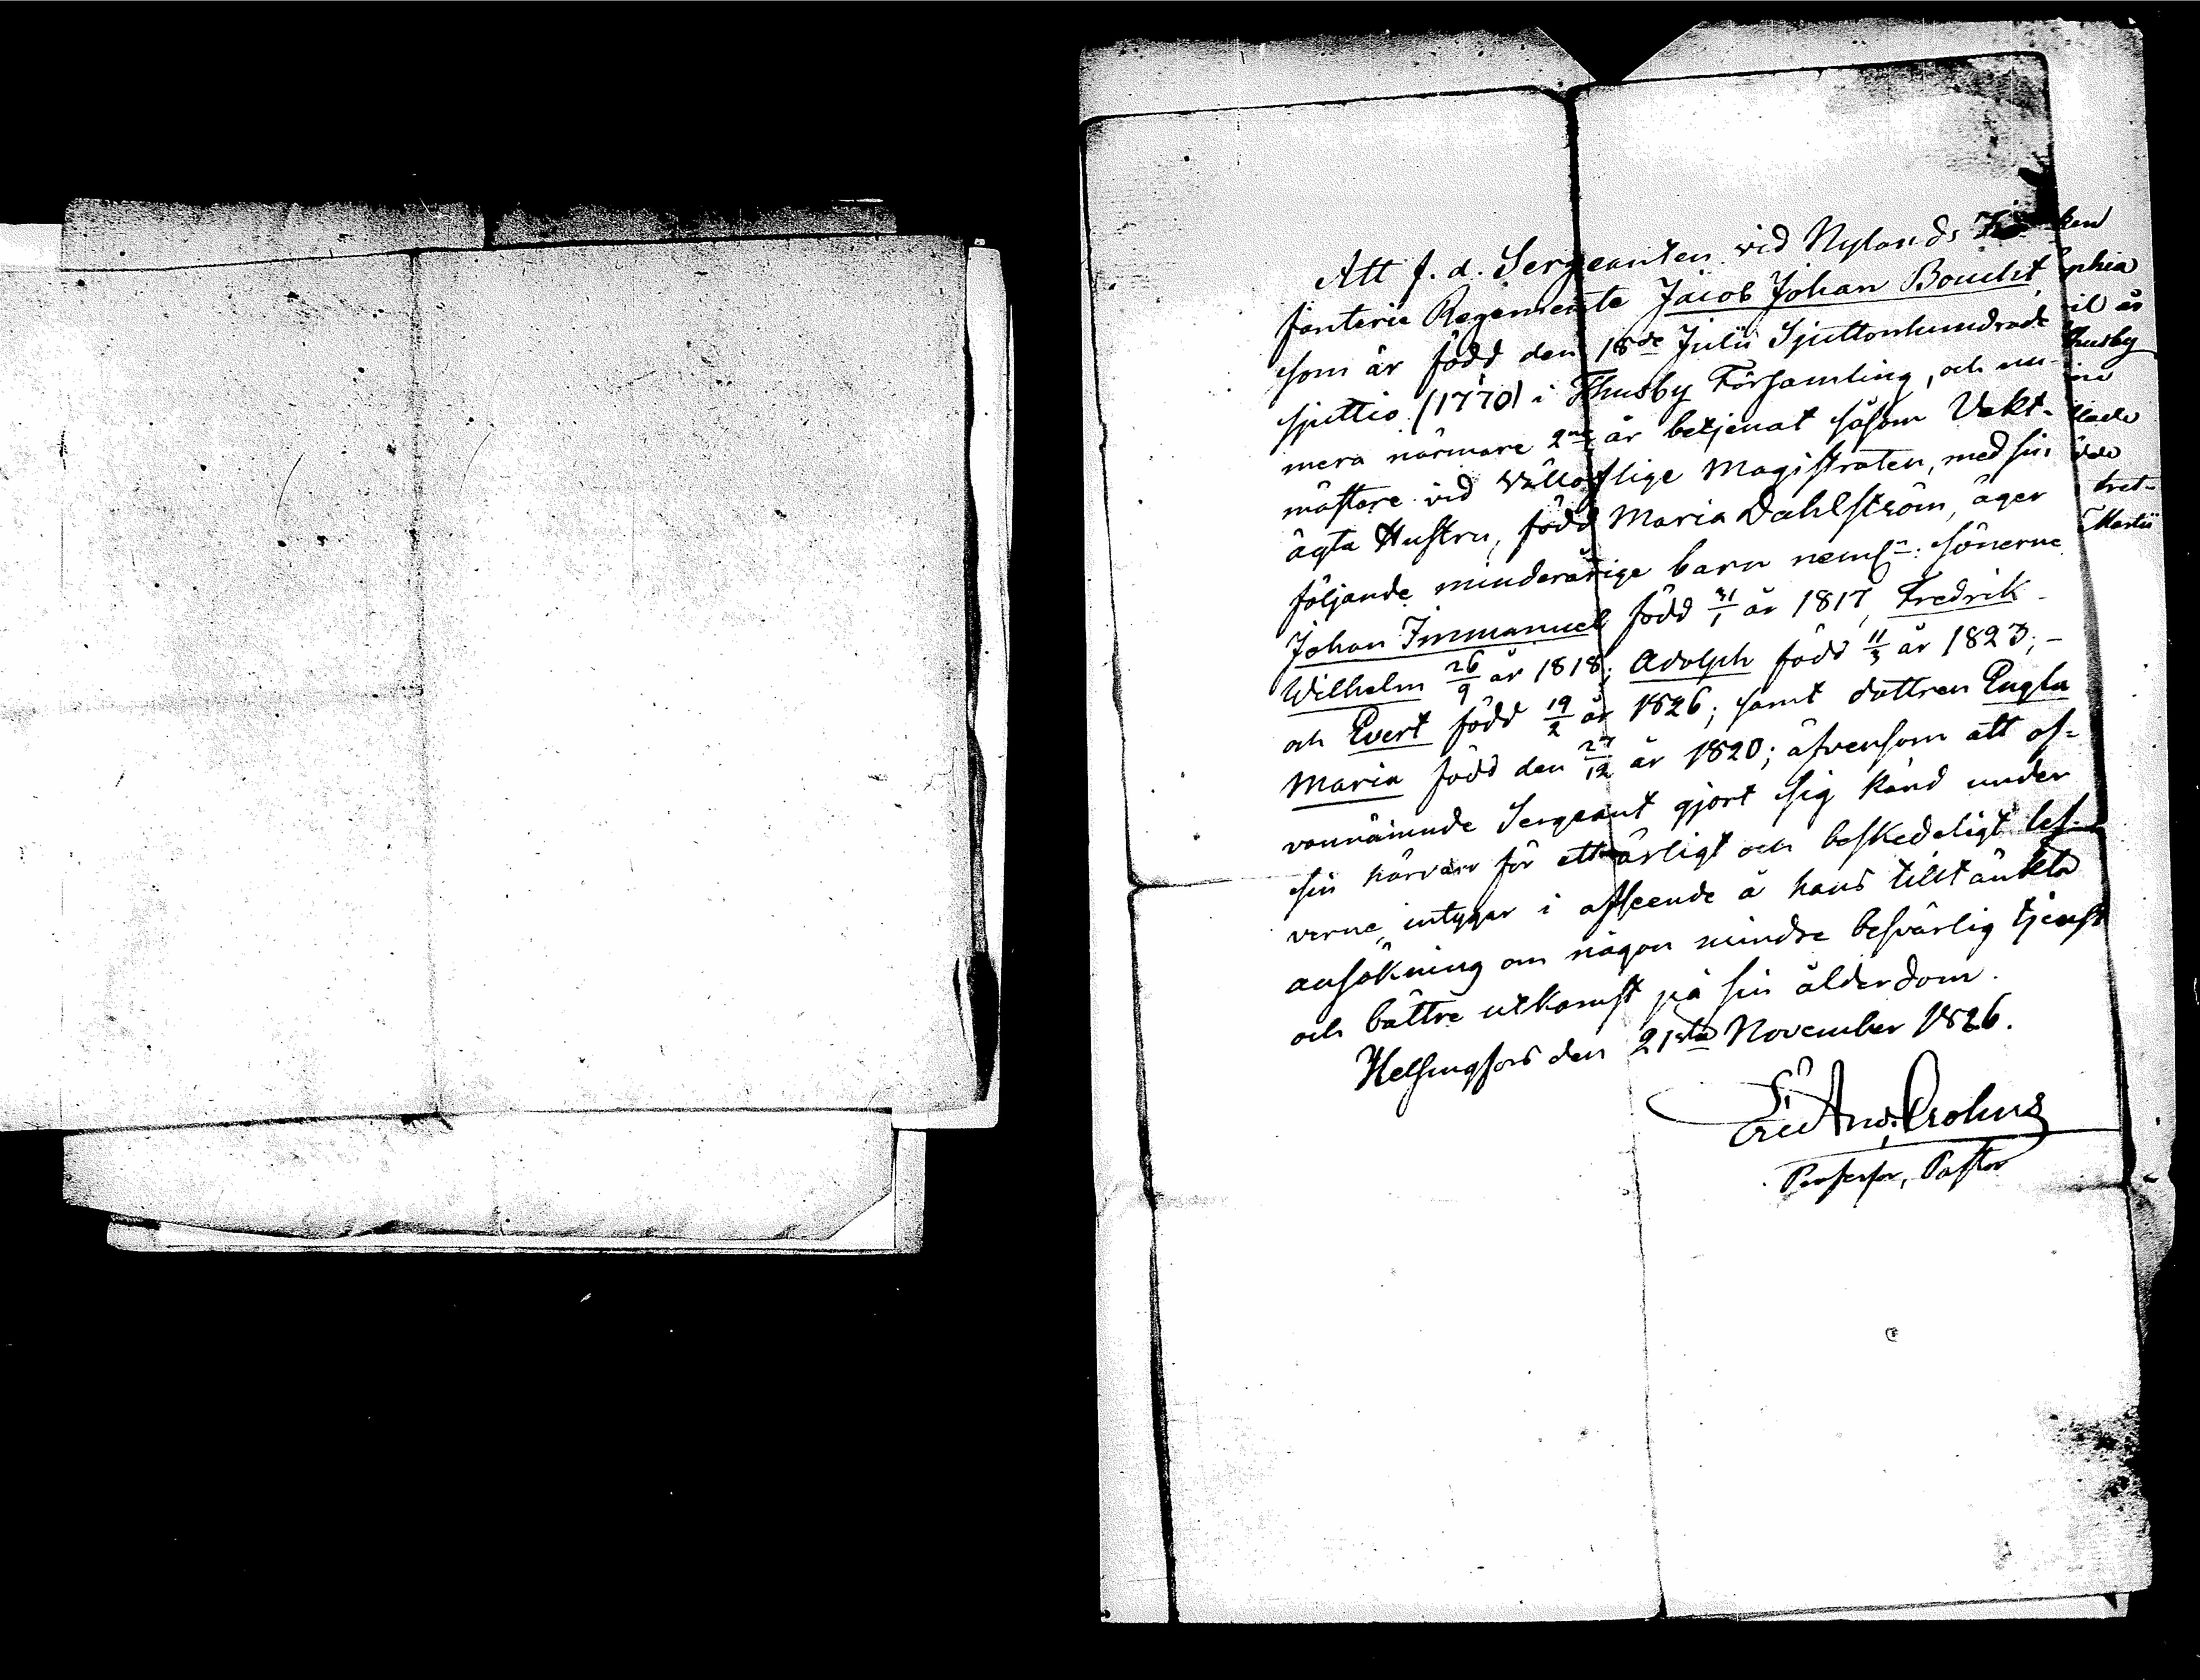 Att f. d. Sergeanten vid Nylands
fanterie Regemente Jacob Johan Boucht,
som är född den 18de Julii Sjuttonhundrade
sjuttio (1770) i Thusby Församling, och nu-
mera närmare 2ne år betjenat såsom Vakt-
mästare vid Välloflige Magistraten, med sin
ägta Hustru, född Maria Dahlström, äger
följande minderårige barn neml: sönerne
Johan Immanuel född 31/1 år 1817, Fredrik
Wilhelm 26/9 år 1818; Adolph född 11/3 år 1823; -
och Evert född 19/2 år 1826; samt dottren Engla
Maria född den 27/12 år 1820; äfvensom att of-
vannämnde Sergeant gjort sig känd under
sin härvaro för ett ärligt och beskedeligt lef-
verne, intygar i afseende å hans tilltänkta
ansökning om någon mindre besvärlig tjenst
och bättre utkomst på sin ålderdom.
Helsingfors den 21sta November 1826.
Eric And. Crohns
Professor, Pastor
ken
phia
il år
husby
lade
tret-
Martii